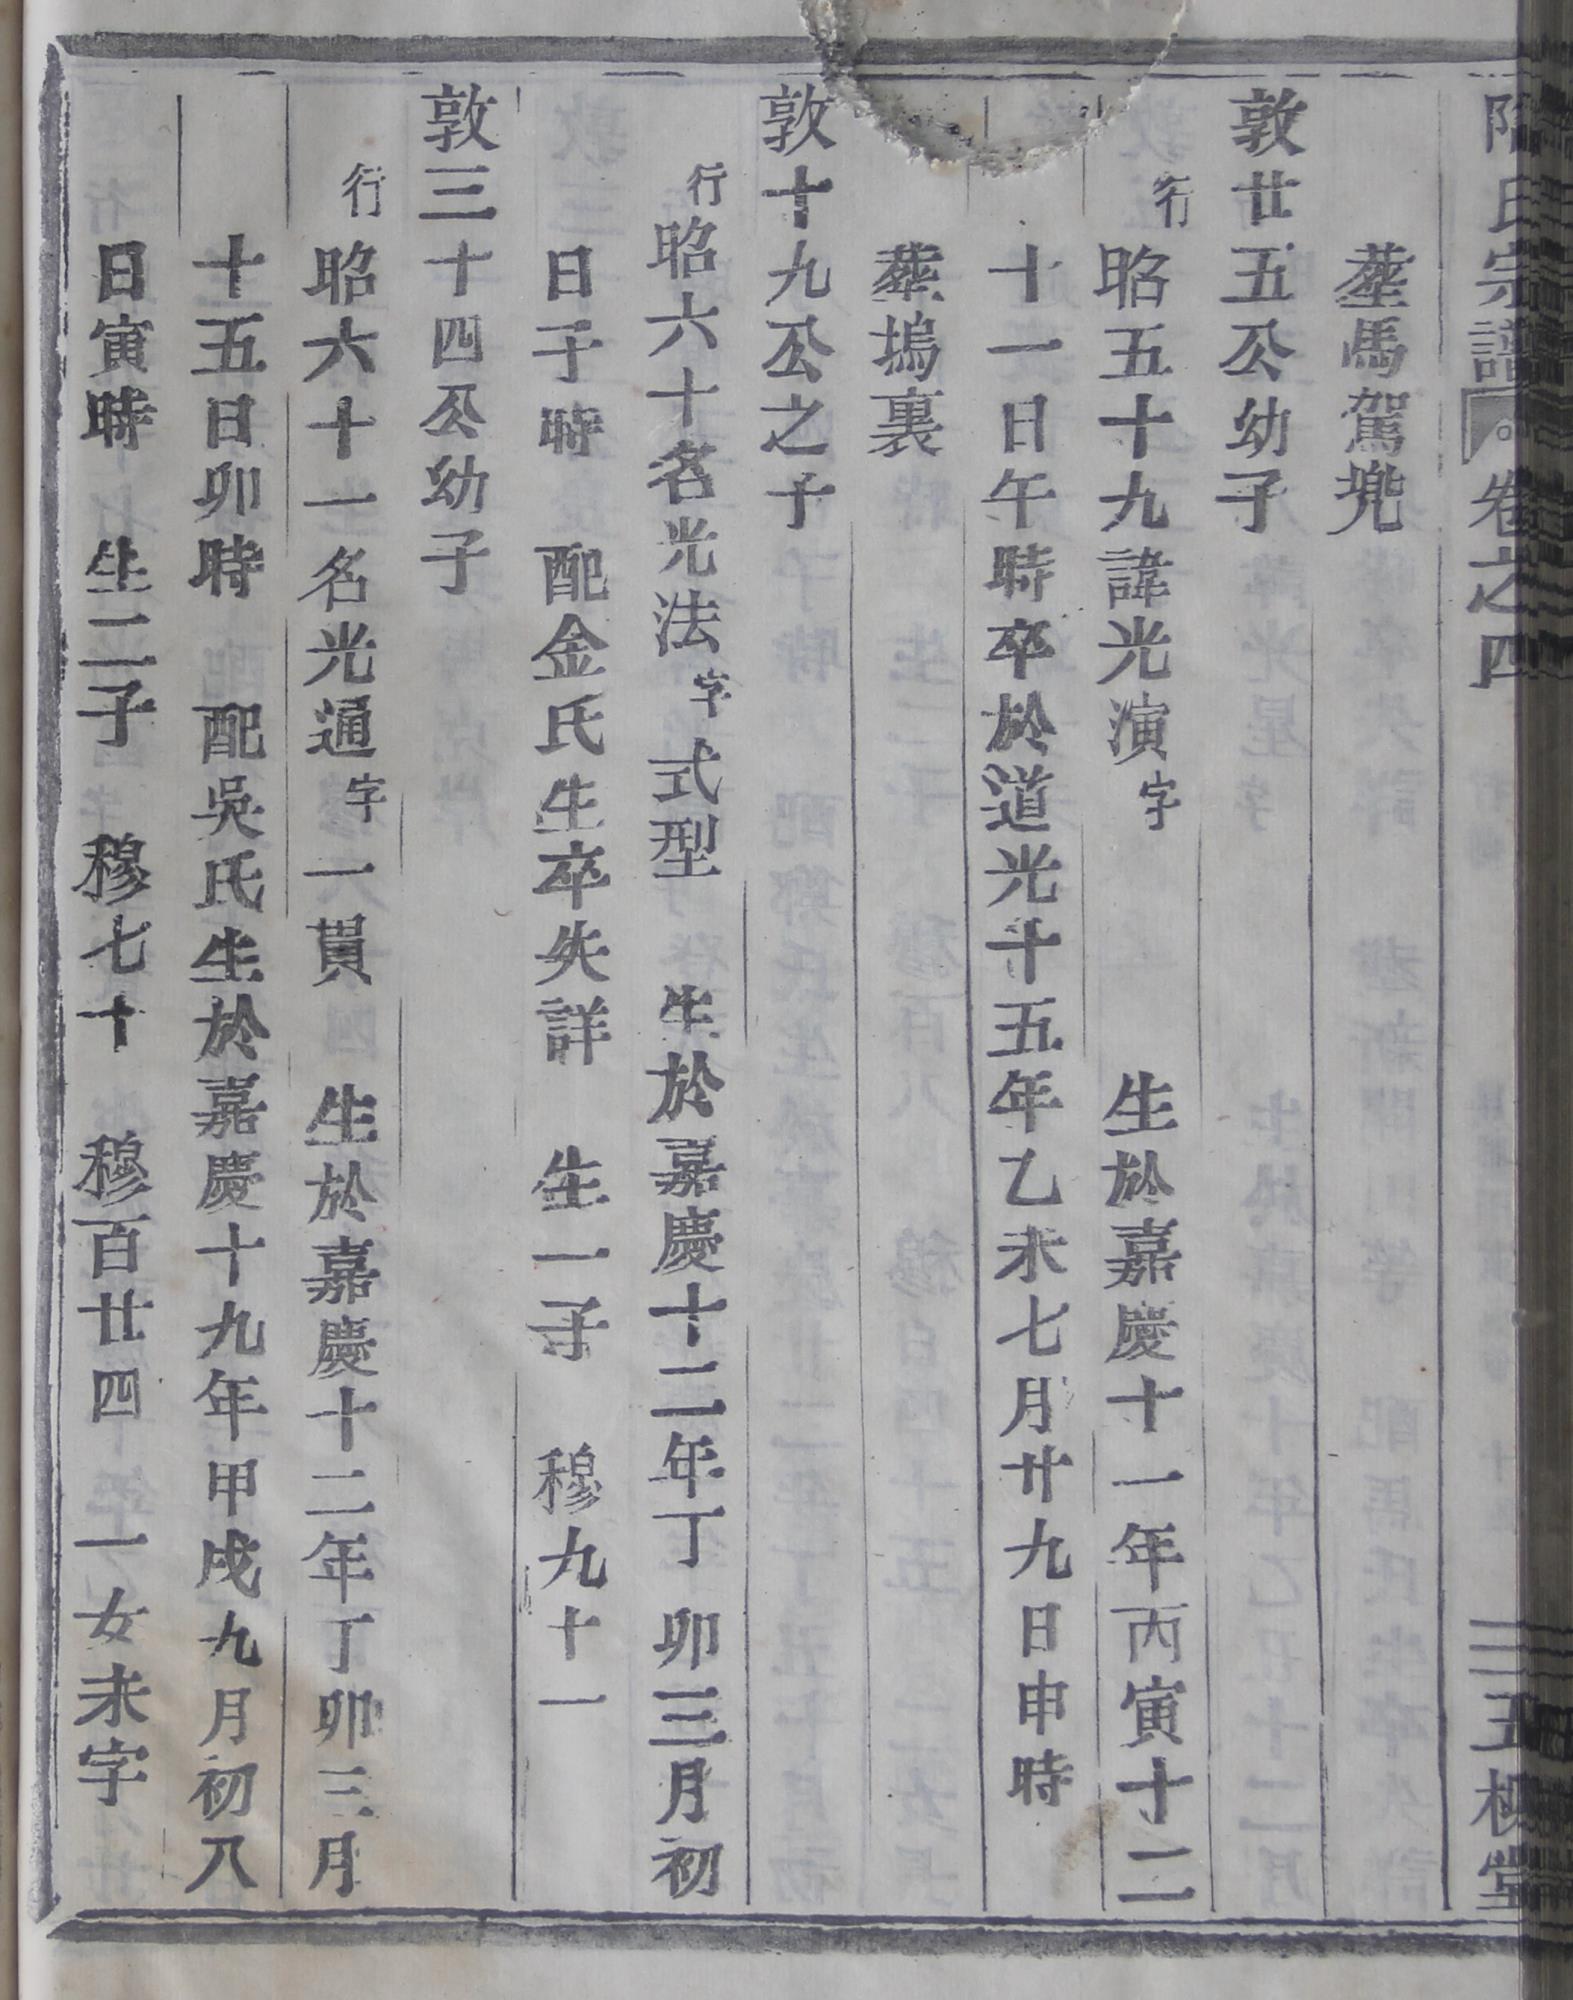 氏宗譜 卷之四 三槐堂
塟馬駕兠
敦廿五公幼子
行昭五十九諱光演字 生於嘉慶十一年丙寅十二
十一日午時卒於道光十五年乙未七月廿九日申時
塟塢裏
敦十九公之子
行昭六十名光法字式型 生於嘉慶十二年丁卯三月初
日子時 配金氏生卒失詳 生一子 穆九十一
敦三十四公幼子
行昭六十一名光通字一貫 生於嘉慶十二年丁卯三月
十五日卯時 配吳氏生於嘉慶十九年甲戌九月初八
日寅時 生二子 穆七十 穆百廿四 一女未字